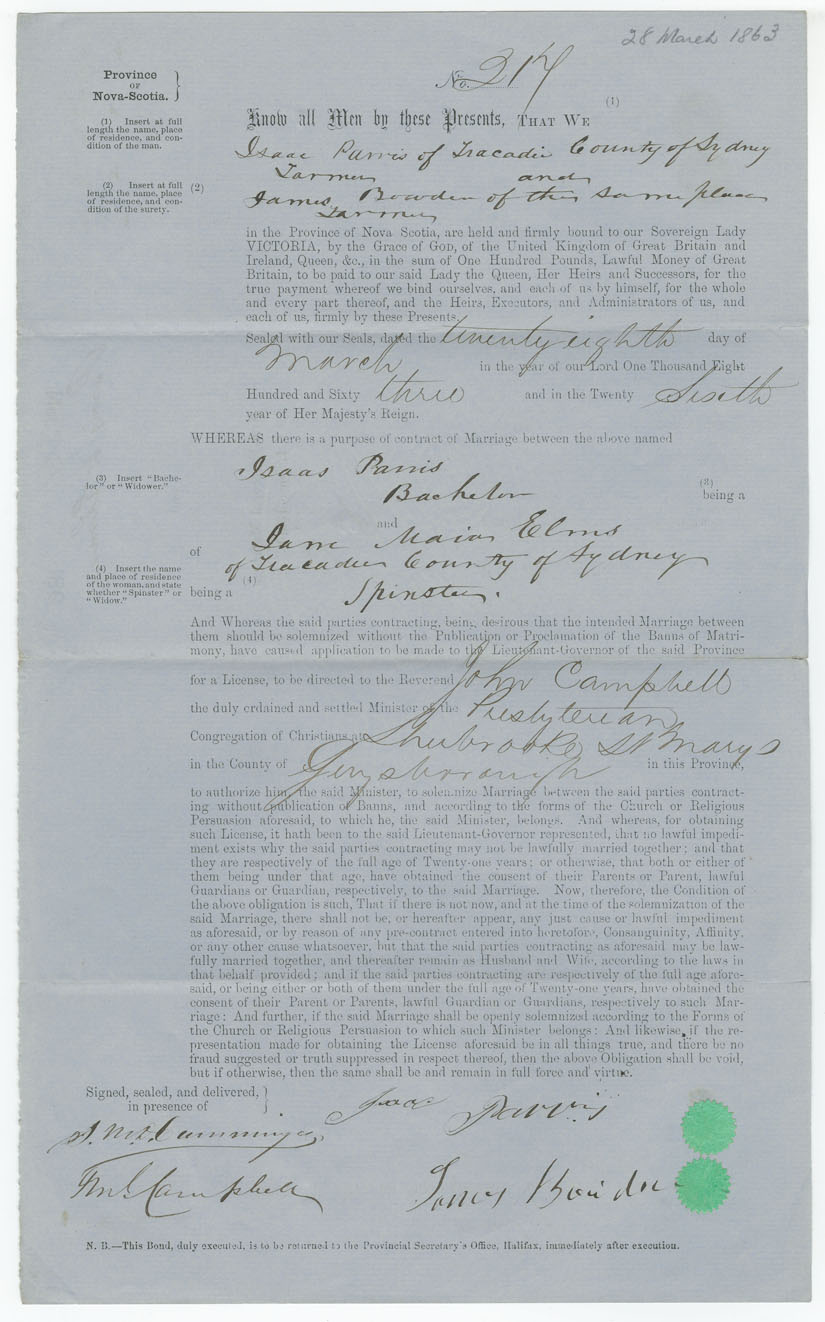 28 March 1863
Province
OF
Nova-Scotia.
No. 217
(1) Insert at full
length the name, place
of residence, and con-
dition of the man.
(1)
Know all Men by these Presents, THAT WE
Isaac Parris of Tracadie County of Sydney
Farmer and
(2) Insert at full
length the name, place
of residence, and con-
dition of the surety.
(2)
James Bowden of the same place
Farmer
in the Province of Nova Scotia, are held and firmly bound to our Sovereign Lady
VICTORIA, by the Grace of GOD, of the United Kingdom of Great Britain and
Ireland, Queen, &c., in the sum of One Hundred Pounds, Lawful Money of Great
Britain, to be paid to our said Lady the Queen, Her Heirs and Successors, for the
true payment whereof we bind ourselves, and each of us by himself, for the whole
and every part thereof, and the Heirs, Executors, and Administrators of us, and
each of us, firmly by these Presents.
Sealed with our Seals, dated the twenty eighth day of
March in the year of our Lord One Thousand Eight
Hundred and Sixty three and in the Twenty Sixth
year of Her Majesty's Reign.
WHEREAS there is a purpose of contract of Marriage between the above named
Isaac Parris
(3) Insert "Bache-
lor" or "Widower."
Bachelor
(3)
being a
and
of Jane Elms
of Tracadie County of Sydney
(4) Insert the name
and place of residence
of the woman, and state
whether "Spinster" or
"Widow."
(4)
being a Spinster.
And Whereas the said parties contracting, being, desirous that the intended Marriage between
them should be solemnized without the Publication or Proclamation of the Banns of Matri-
mony, have caused application to be made to the Lieutenant-Governor of the said Province
for a License, to be directed to the Reverend John Campbell
the duly ordained and settled Minister of the Presbyterian
Congregation of Christians at Sherbrooke St Marys
in the County of Guysborough in this Province,
to authorize him, the said Minister, to solemnize Marriage between the said parties contract-
ing without Publication of Banns, and according to the forms of the Church or Religious
Persuasion aforesaid, to which he, the said Minister, belongs. And whereas, for obtaining
such License, it hath been to the said Lieutenant-Governor represented, that no lawful impedi-
ment exists why the said parties contracting may not be lawfully married together; and that
they are respectively of the full age of Twenty-one years; or otherwise, that both or either of
them being under that age, have obtained the consent of their Parents or Parent, lawful
Guardians or Guardian, respectively, to the said Marriage. Now, therefore, the Condition of
the above obligation is such, That if there is not now, and at the time of the solemnization of the
said Marriage, there shall not be, or hereafter appear, any just cause or lawful impediment
as aforesaid, or by reason of any pre-contract entered into heretofore, Consanguinity, Affinity,
or any other cause whatsoever, but that the said parties contracting as aforesaid may be law-
fully married together, and thereafter remain as Husband and Wife, according to the laws in
that behalf provided; and if the said parties contracting are respectively of the full age afore-
said, or being either or both of them under the full age of Twenty-one years, have obtained the
consent of their Parent or Parents, lawful Guardian or Guardians, respectively to such Mar-
riage: And further, if the said Marriage shall be openly solemnized according to the Forms of
the Church or Religious Persuasion to which such Minister belongs: And likewise, if the re-
presentation made for obtaining the License aforesaid be in all things true, and there be no
fraud suggested or truth suppressed in respect thereof, then the above Obligation shall be void,
but if otherwise, then the same shall be and remain in full force and virtue.
Signed, sealed, and delivered,
in presence of
Parris
Cumminger
Campbell
N. B.—This Bond, duly executed, is to be returned to the Provincial Secretary's Office, Halifax, immediately after execution.